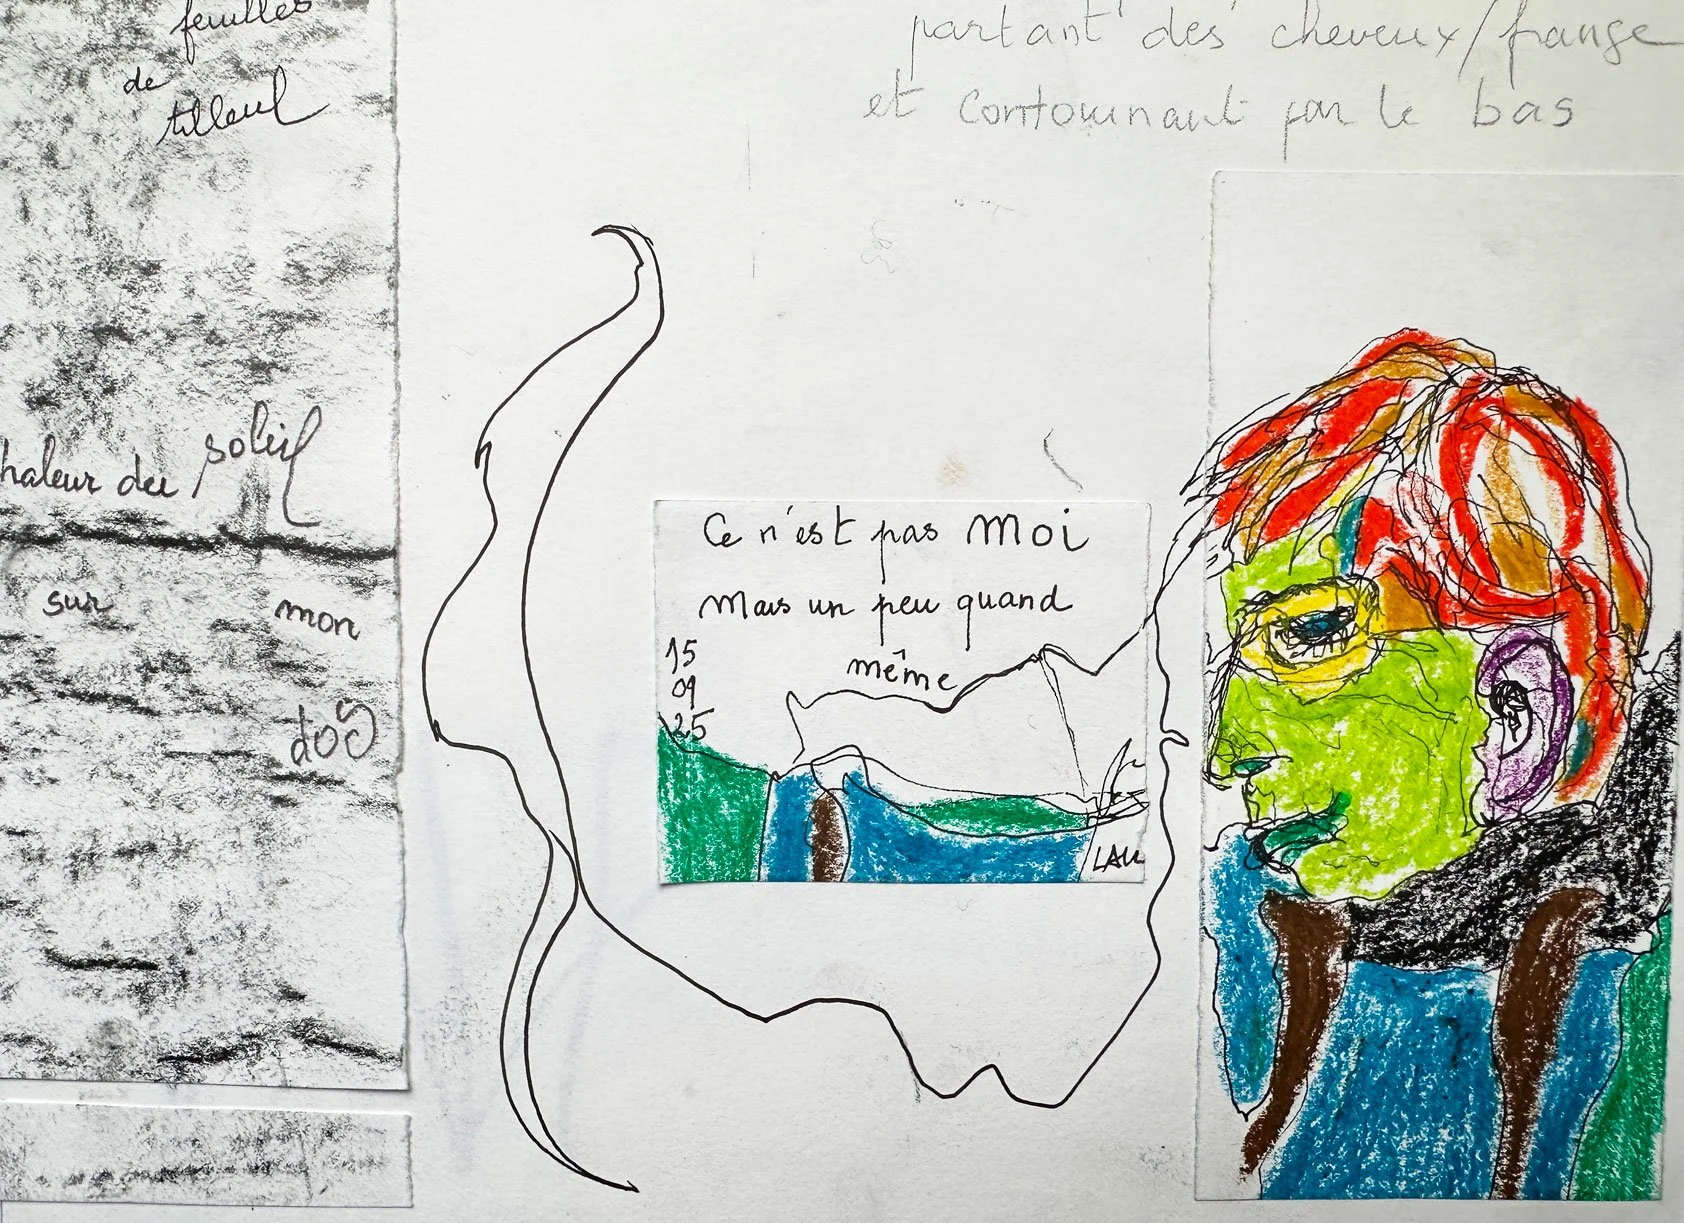 feuilles
de
tilleul
haleur du soleil
sur mon
dos
partant des cheveux/frange
et contournant par le bas
Ce n'est pas moi
Mais un peu quand
même
15
09
25
LAU